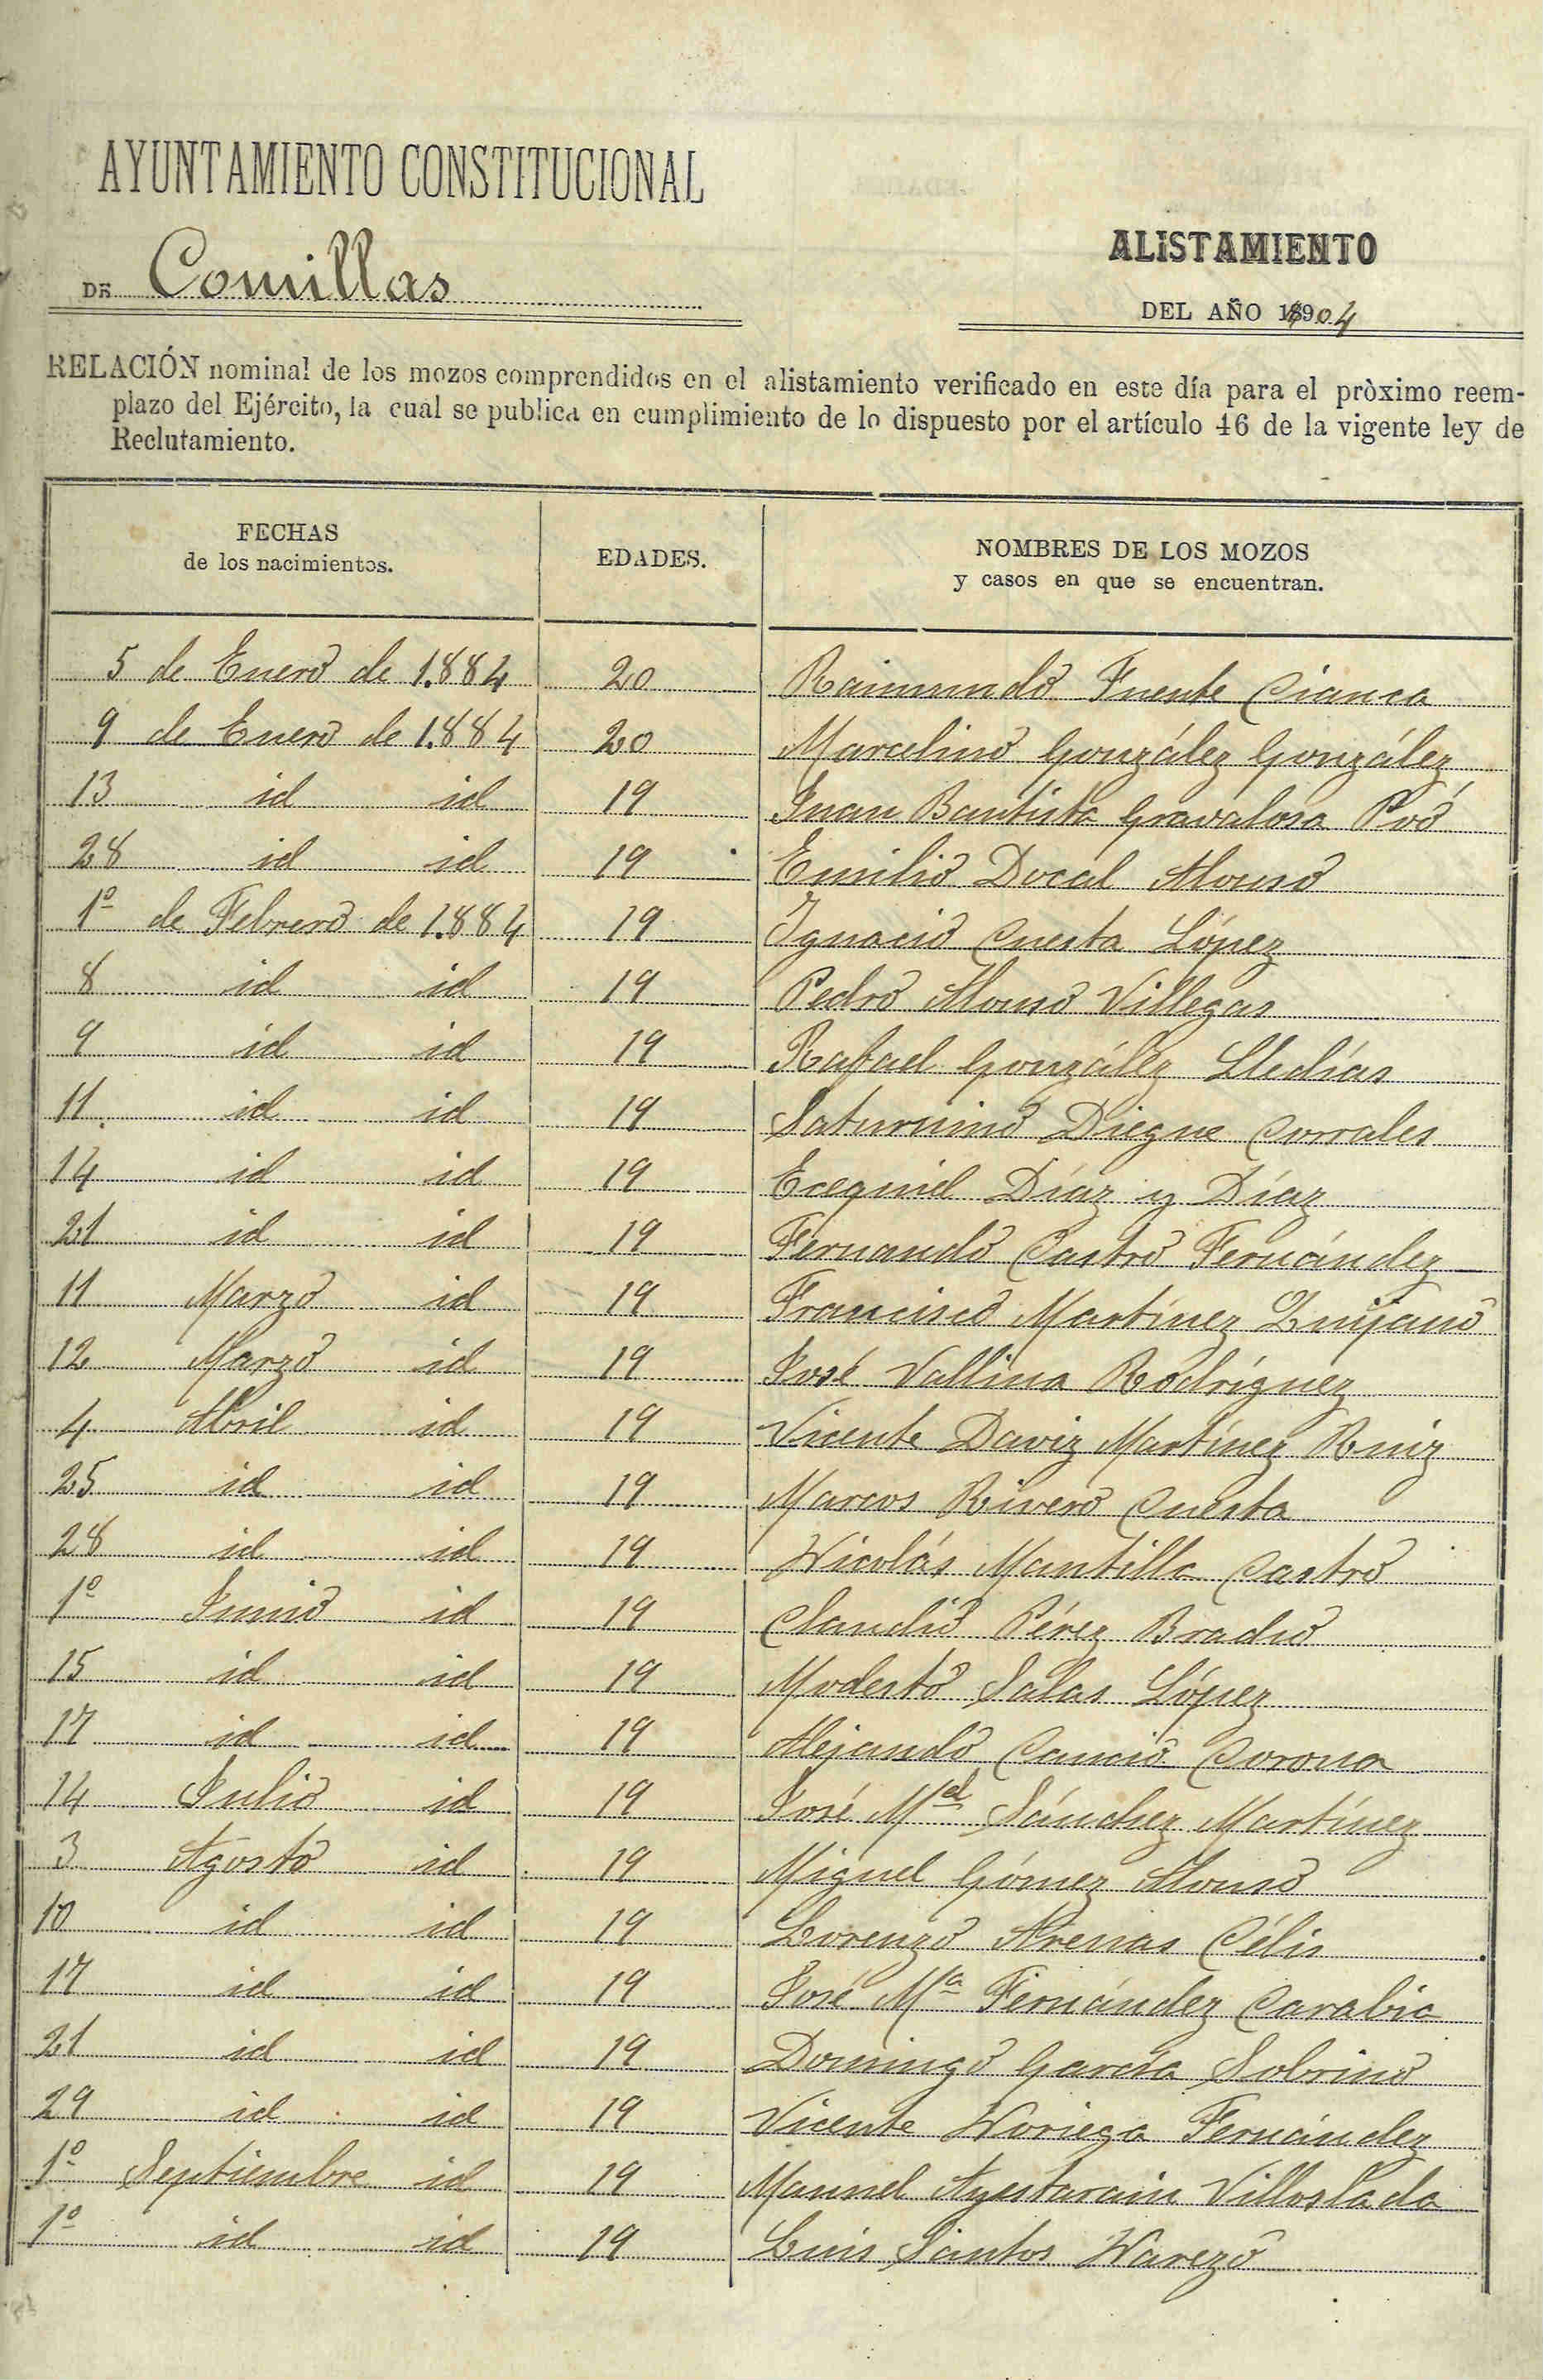 AYUNTAMIENTO CONSTITUCIONAL
DE Comillas
ALISTAMIENTO
DEL AÑO 1904
RELACIÓN nominal de los mozos comprendidos en el alistamiento verificado en este día para el pròximo reem-
plazo del Ejército, la cual se publica en cumplimiento de lo dispuesto por el artículo 46 de la vigente ley de
Reclutamiento.
FECHAS
de los nacimientos.
EDADES.
NOMBRES DE LOS MOZOS
y casos en que se encuentran.
5 de Enero de 1.884 20 Raimundo Fuente Cianca
9 de Enero de 1.884 20 Marcelino González González
13 id id 19 Juan Bautista Gravalosa Poó
28 id id 19 Emilio Docal Alonso
1º de Febrero de 1.884 19 Ignacio Cuesta López
8 id id 19 Pedro Alonso Villegas
9 id id 19 Rafael González Lledías
11 id id 19 Saturnino Diegue Corrales
14 id id 19 Ecequiel Díaz y Díaz
21 id id 19 Fernando Castro Fernández
11 Marzo id 19 Francisco Martínez Quijano
12 Marzo id 19 José Vallina Rodríguez
4 Abril id 19 Vicente Daviz Martínez Ruiz
25 id id 19 Marcos Rivero Cuesta
28 id id 19 Nicolás Mantilla Castro
1º Junio id 19 Claudio Pérez Bradio
15 id id 19 Modesto Salas López
17 id id 19 Alejando Cancio Corona
14 Julio id 19 José Mel Sánchez Martínez
3 Agosto id 19 Miguel Gómez Alonso
10 id id 19 Lorenzo Arenas Célis
17 id id 19 José Mª Fernández Carabia
21 id id 19 Domingo García Sobrino
29 id id 19 Vicente Noriega Fernández
1º Septiembre id 19 Manuel Ayestarain Villoslada
1º id id 19 Luis Santos Narezo